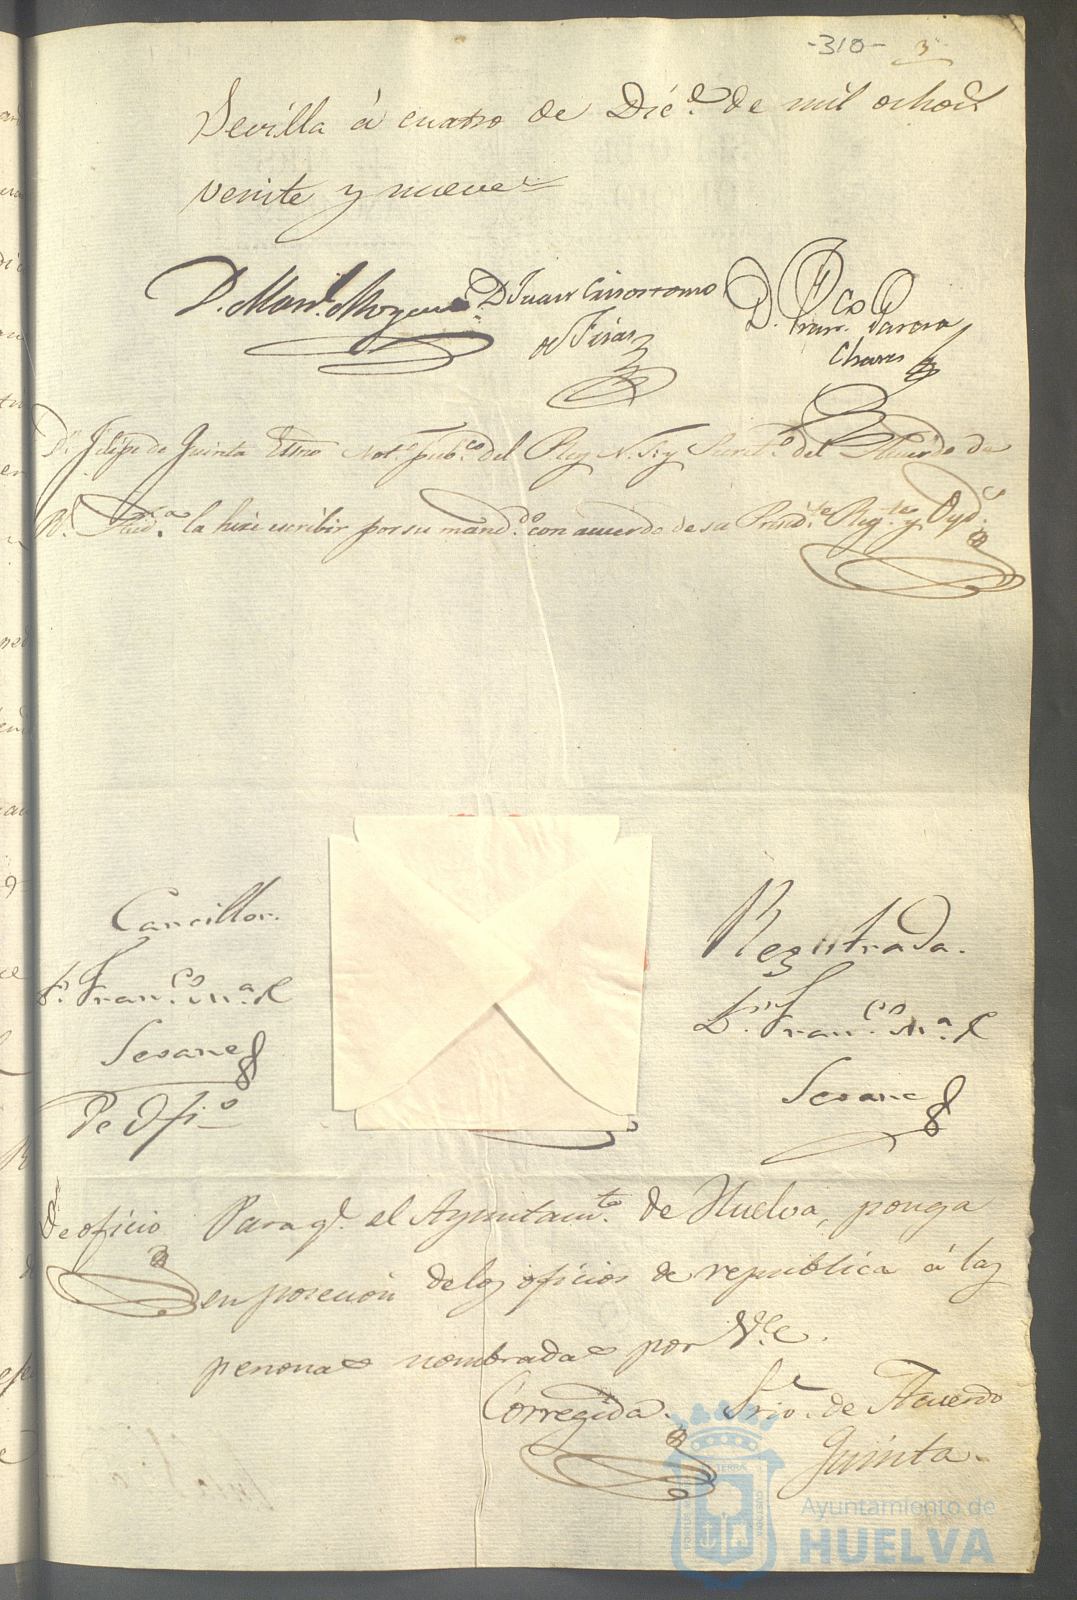 -310- 3
Sevilla á cuatro de Dic.e de mil ochoc.s
veinte y nueve
D. Man.l D. Juan Crisostomo D. Fran.co
de
Chaves
D.n Felipe de Quinta Es.no Not.o pub.co del Rey N. S. y Secret.o del Acuerdo de
R.l Aud.a la hize escribir por su mand.o con acuerdo de su Presid.te Reg.te y Oyd.s
Canciller. Registrada.
D.n Fran.co M.a D.n Fran.co M.a
Seoane Seoane
De Ofi.o
De oficio Para q.e el Ayuntam.to de Huelva, ponga
en posecion de los oficios de republica á las
personas nombradas por V.e
Corregida. Srio. de Acuerdo
Quinta.
Ayuntamiento de
HUELVA